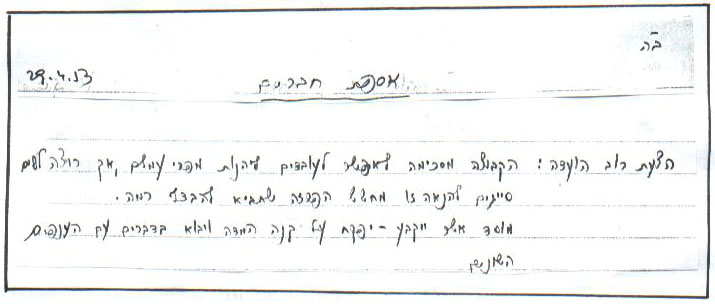 ב"ה
29.4.53
אספת חברים
הצעת רוב הועדה: הקבוצה מסכימה לאפשר לעובדים ליהנות מפרי עמלם, אך רוצה לשים
סייגים להנאה זו מחשש הפרזה שתביא להבדלי רמה.
מוסד אשר ייקבע - יפקח על קנה המדה ויבוא בדברים עם הענפים
השונים